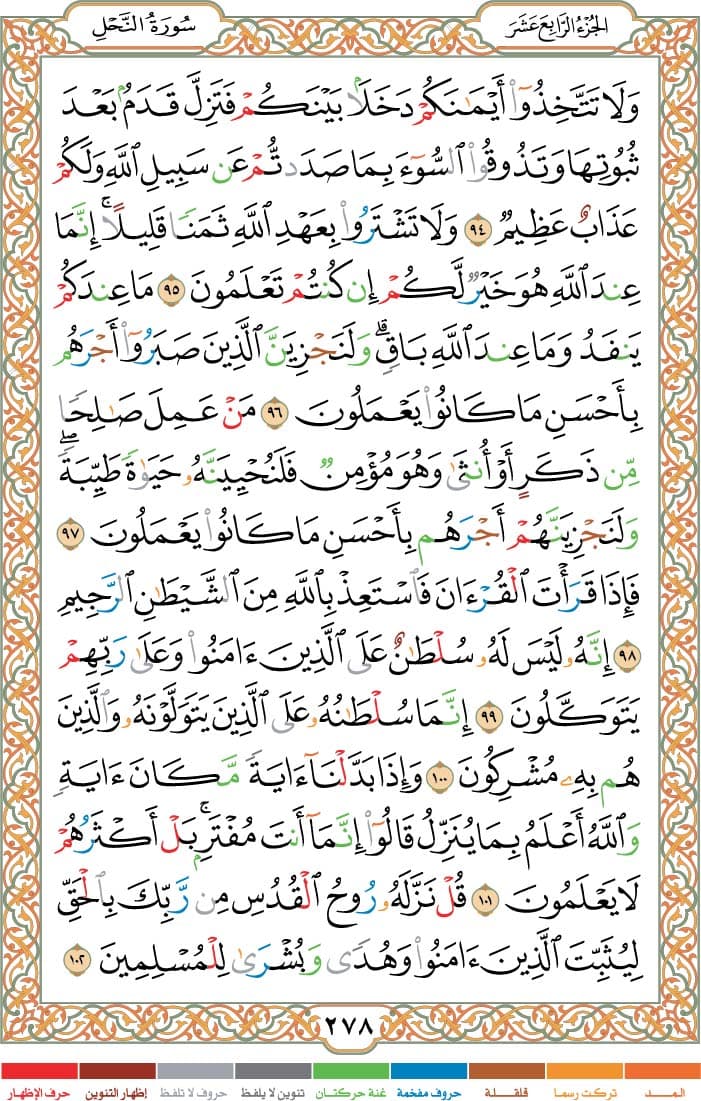 الجُزْءُ الرَّابِعَ عَشَرَ
سُورَةُ النَّحْلِ
وَلَا تَتَّخِذُوٓا۟ أَيْمَـٰنَكُمْ دَخَلًۢا بَيْنَكُمْ فَتَزِلَّ قَدَمٌۢ بَعْدَ
ثُبُوتِهَا وَتَذُوقُوا۟ ٱلسُّوٓءَ بِمَا صَدَدتُّمْ عَن سَبِيلِ ٱللَّهِ وَلَكُمْ
عَذَابٌ عَظِيمٌ ٩٤ وَلَا تَشْتَرُوا۟ بِعَهْدِ ٱللَّهِ ثَمَنًا قَلِيلًا ۚ إِنَّمَا
عِندَ ٱللَّهِ هُوَ خَيْرٌ لَّكُمْ إِن كُنتُمْ تَعْلَمُونَ ٩٥ مَا عِندَكُمْ
يَنفَدُ وَمَا عِندَ ٱللَّهِ بَاقٍ ۗ وَلَنَجْزِيَنَّ ٱلَّذِينَ صَبَرُوٓا۟ أَجْرَهُم
بِأَحْسَنِ مَا كَانُوا۟ يَعْمَلُونَ ٩٦ مَنْ عَمِلَ صَـٰلِحًا
مِّن ذَكَرٍ أَوْ أُنثَىٰ وَهُوَ مُؤْمِنٌ فَلَنُحْيِيَنَّهُۥ حَيَوٰةً طَيِّبَةً ۖ
وَلَنَجْزِيَنَّهُمْ أَجْرَهُم بِأَحْسَنِ مَا كَانُوا۟ يَعْمَلُونَ ٩٧
فَإِذَا قَرَأْتَ ٱلْقُرْءَانَ فَٱسْتَعِذْ بِٱللَّهِ مِنَ ٱلشَّيْطَـٰنِ ٱلرَّجِيمِ
٩٨ إِنَّهُۥ لَيْسَ لَهُۥ سُلْطَـٰنٌ عَلَى ٱلَّذِينَ ءَامَنُوا۟ وَعَلَىٰ رَبِّهِمْ
يَتَوَكَّلُونَ ٩٩ إِنَّمَا سُلْطَـٰنُهُۥ عَلَى ٱلَّذِينَ يَتَوَلَّوْنَهُۥ وَٱلَّذِينَ
هُم بِهِۦ مُشْرِكُونَ ١٠٠ وَإِذَا بَدَّلْنَآ ءَايَةً مَّكَانَ ءَايَةٍ
وَٱللَّهُ أَعْلَمُ بِمَا يُنَزِّلُ قَالُوٓا۟ إِنَّمَآ أَنتَ مُفْتَرٍۭ ۚ بَلْ أَكْثَرُهُمْ
لَا يَعْلَمُونَ ١٠١ قُلْ نَزَّلَهُۥ رُوحُ ٱلْقُدُسِ مِن رَّبِّكَ بِٱلْحَقِّ
لِيُثَبِّتَ ٱلَّذِينَ ءَامَنُوا۟ وَهُدًى وَبُشْرَىٰ لِلْمُسْلِمِينَ ١٠٢
٢٧٨
المــد تركت رسما قلقلة حروف مفخمة غنة حركتان تنوين لا يلفظ حروف لا تلفظ إظهار التنوين حرف الإظهار